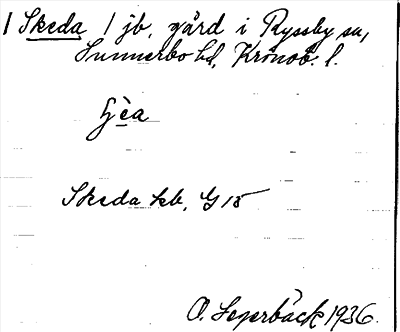 1 Skeda 1 jb, gård i Ryssby sn,
Sunnerbo hd, Kronob. l.
Skeda kb, G 15
O. Segerbäck 1936.